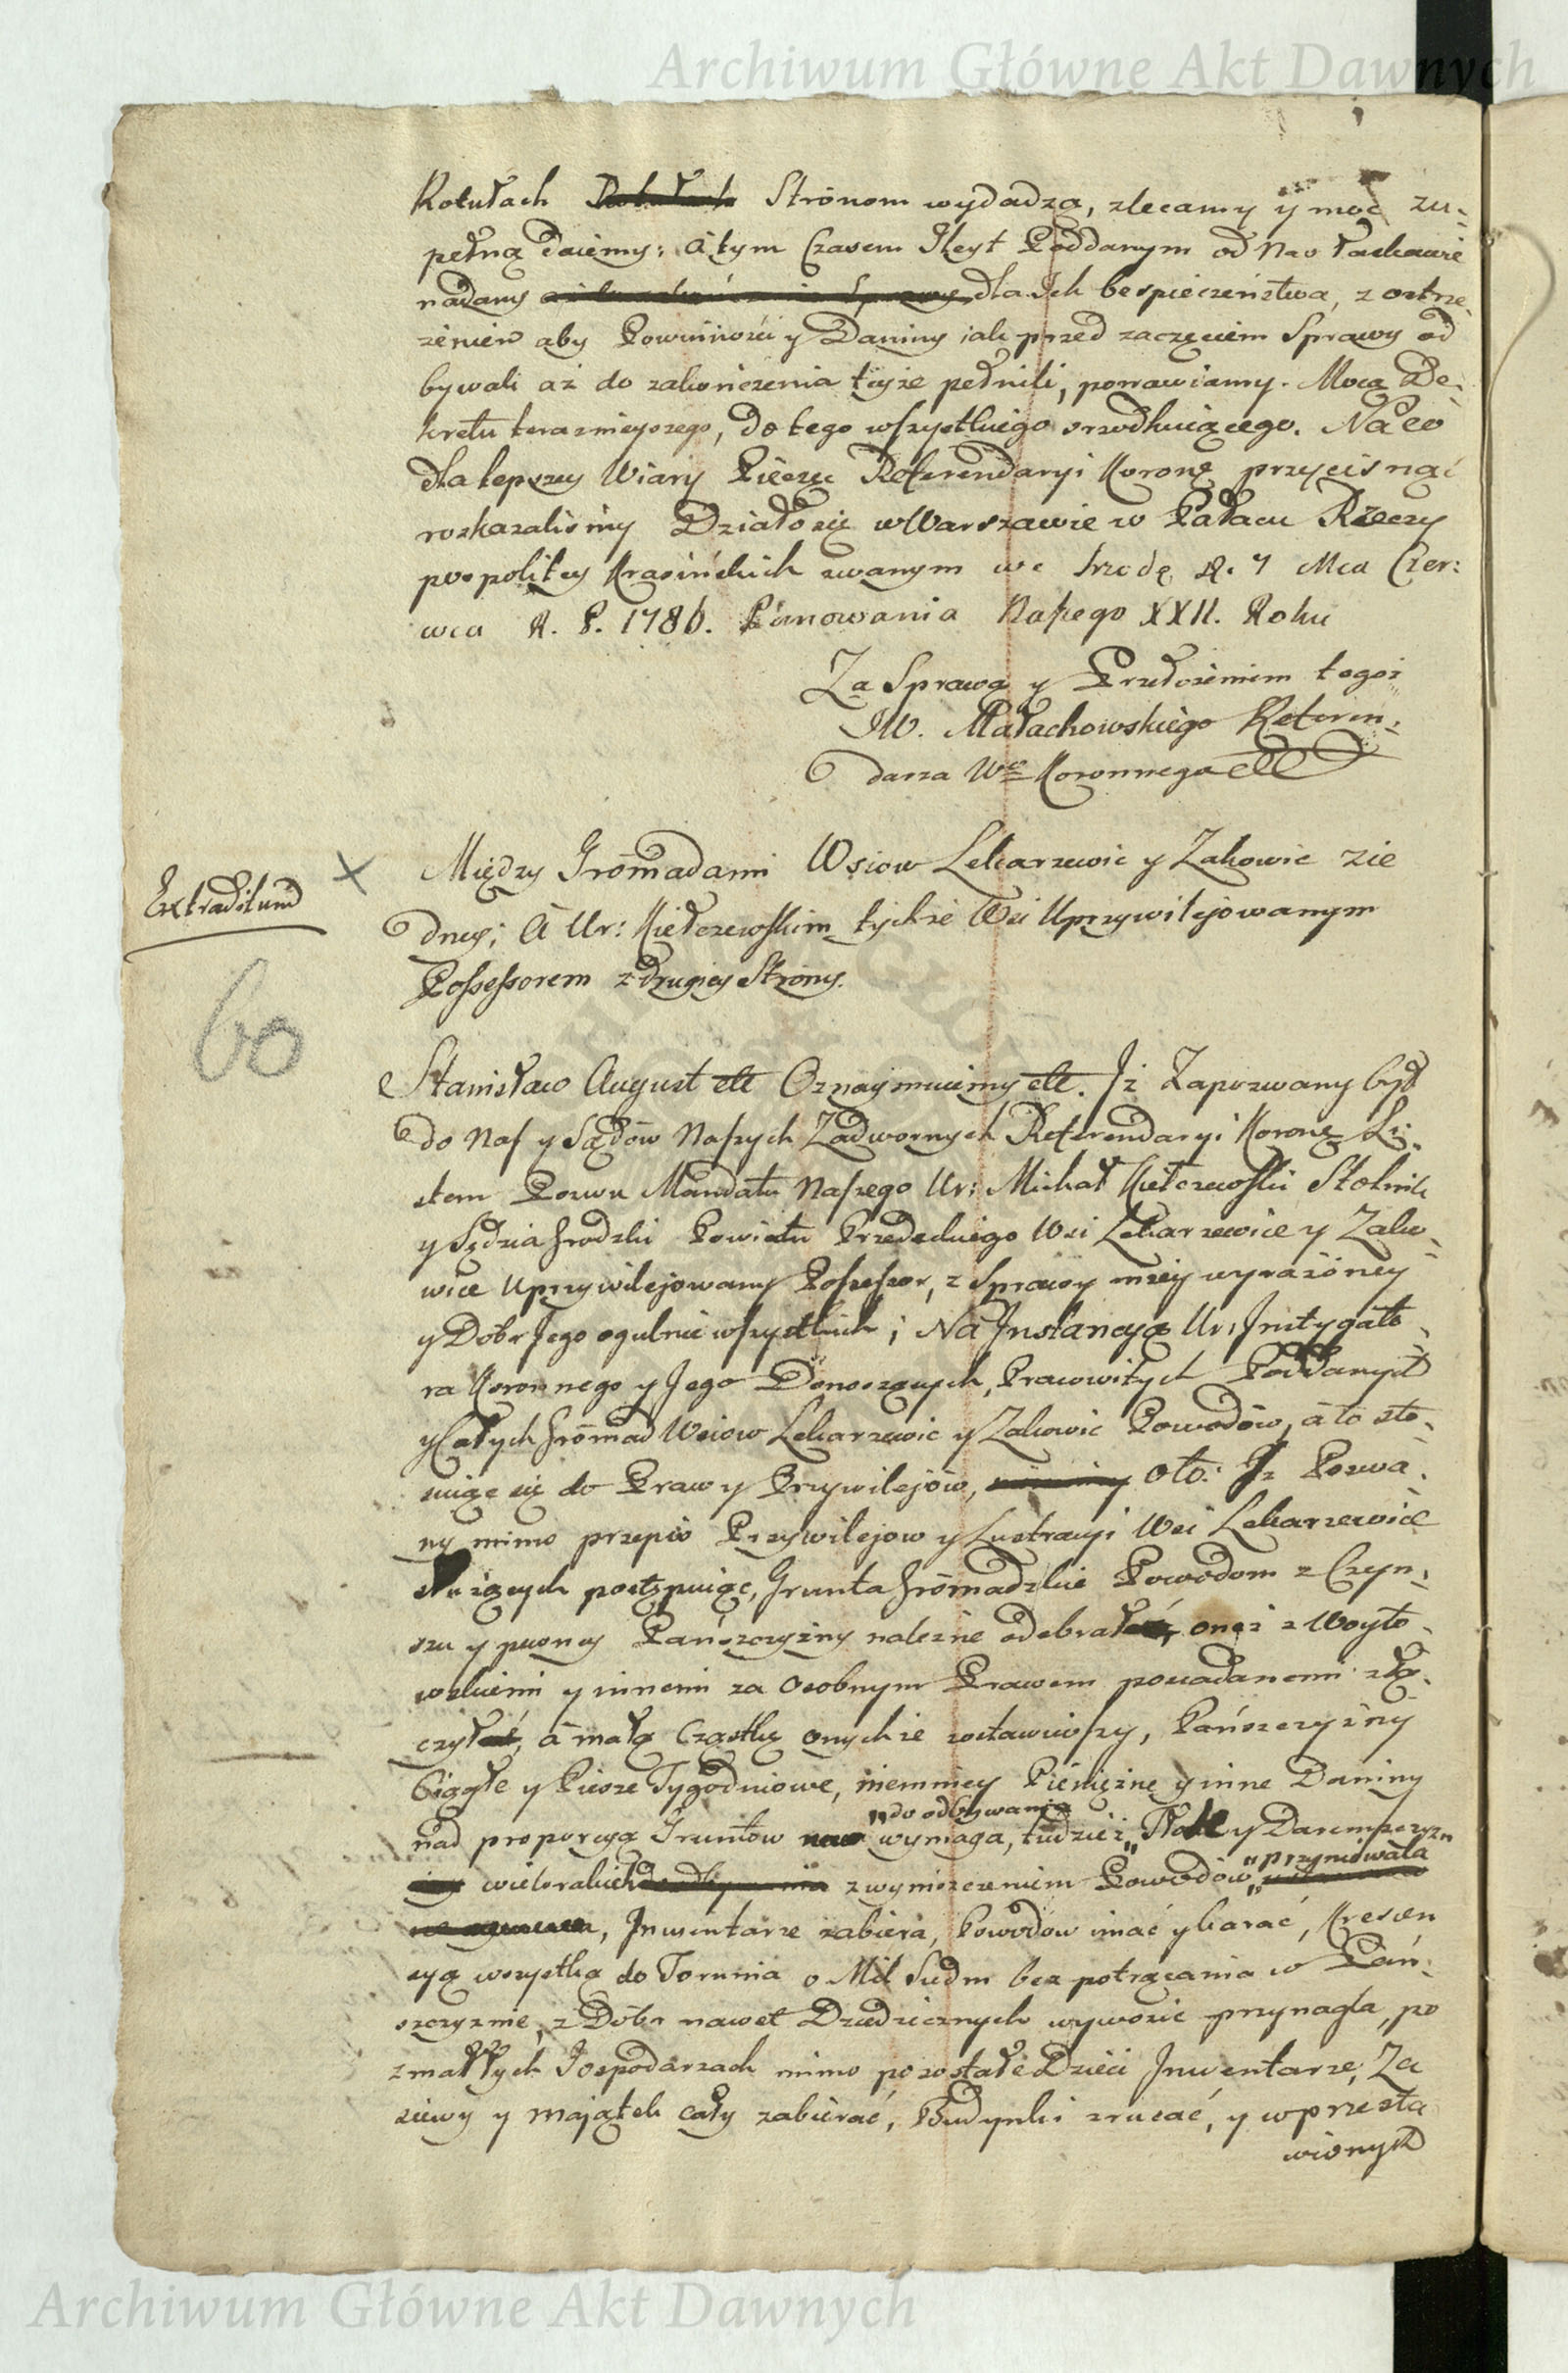 Archiwum Główne Akt Dawnych
Rotułach Rotułach Stronom wydadzą, zlecamy y moc zu-
pełną daiemy; á tym Czasem Gleyt Poddanym od Nas łaskawie
nadany dla Ich bespieczeństwa, z ostrze-
żeniem aby Powinności y Daniny iak przed zaczęciem Sprawy od
bywali aż do zakończenia teyże pełnili, ponawiamy. Mocą De-
kretu teraznieyszego, do tego wszystkiego srzodkuiącego. Na co
dla lepszey Wiary Pieczęć Referendaryi Koronę przycisnąć
rozkazalismy Działo się w Warszawie w Pałacu Rzeczy
pospolitey Krasińskich zwanym we Srzodę D. 7 Mca Czer:
wca R. P. 1786. Panowania Naszego XXII. Roku
Za Sprawą y Przełożeniem tegoż
JW. Małachowskiego Referen:
darza Wo Koronnego
Extraditum
Między Gromadami Wsiow Lekarzewic y Zakowic zie
dney; á Ur: Kiełczewskim tychże Wsi Uprzywilejowanym
Possessorem z drugiey Strony.
60
Stanisław August etc Oznaymuiemy etc. Iż Zapozwany był
do Nas y Sądów Naszych Zadwornych Referendaryi Koronę Li:
stem Pozwu Mandatu Naszego Ur: Michał Kiełczewski Stolnik
y Sędzia Grodzki Powiatu Przedeckiego Wsi Lekarzewice y Zako-
wice Uprzywilejowany Possessor, z Sprawy niżey wyrażoney
y Dóbr Jego ogulnie wszystkich; Na Instancyą Ur: Instygato-
ra Koronnego y Jego Donoszących, Pracowitych Poddanych
y Całych Gromad Wsiow Lekarzewic y Zakowic Powodów, á to sto-
suiąc się do Praw y Przywilejów, Oto: Iż Pozwa-
ny mimo przepis Przywilejow y Lustracyi Wsi Lekarzewice
służących postępuiąc, Grunta Gromadzkie Powodom z Czyn:
szu y pewney Pańszczyzny należne odebrał, oneż z Woyto-
wskiemi y innemi za Osobnym Prawem posiadanemi złą-
czył, á małą Cząstkę onychże zostawiwszy, Pańszczyzny
Ciągłe y Piesze Tygodniowe, niemniey Pieniężne y inne Daniny
do odbywania
nad proporcyą Gruntow wymaga, tudzież Tłok y Daremszczyzn
przymuwała
wielorakich z wyniszczeniem Powodów
, Inwentarze zabiera, Powodow imać y karać, Krescen
cyą wszystką do Torunia o Mil Siedm bez potrącania w Pań:
szczyznie, z Dóbr nawet Dziedzicznych wywozić przynagla, po
zmarłych Gospodarzach mimo pozostałe Dzieci Inwentarze, Za
siewy y majątek cały zabierać, Budynki zrucać, y w przesta
wionych
Archiwum Główne Akt Dawnych